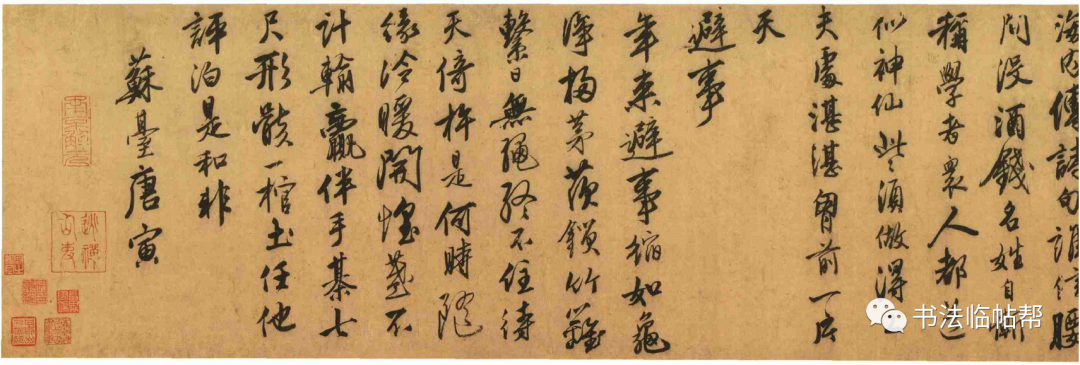 海内傳詩句誰信腰
間没酒錢名姓自
稱學者衆人都道
似神仙些須做得
夫處湛湛胷前一片
天
避事
年來避事縮如龜
淨掃茅茨鎖竹籬
繫日無繩終不住待
天倚杵是何時隨
緣冷暖開懷盞不
計輸贏伴手棊七
尺形骸一棺土任他
評泊是和非
蘇臺唐寅
书法临帖帮